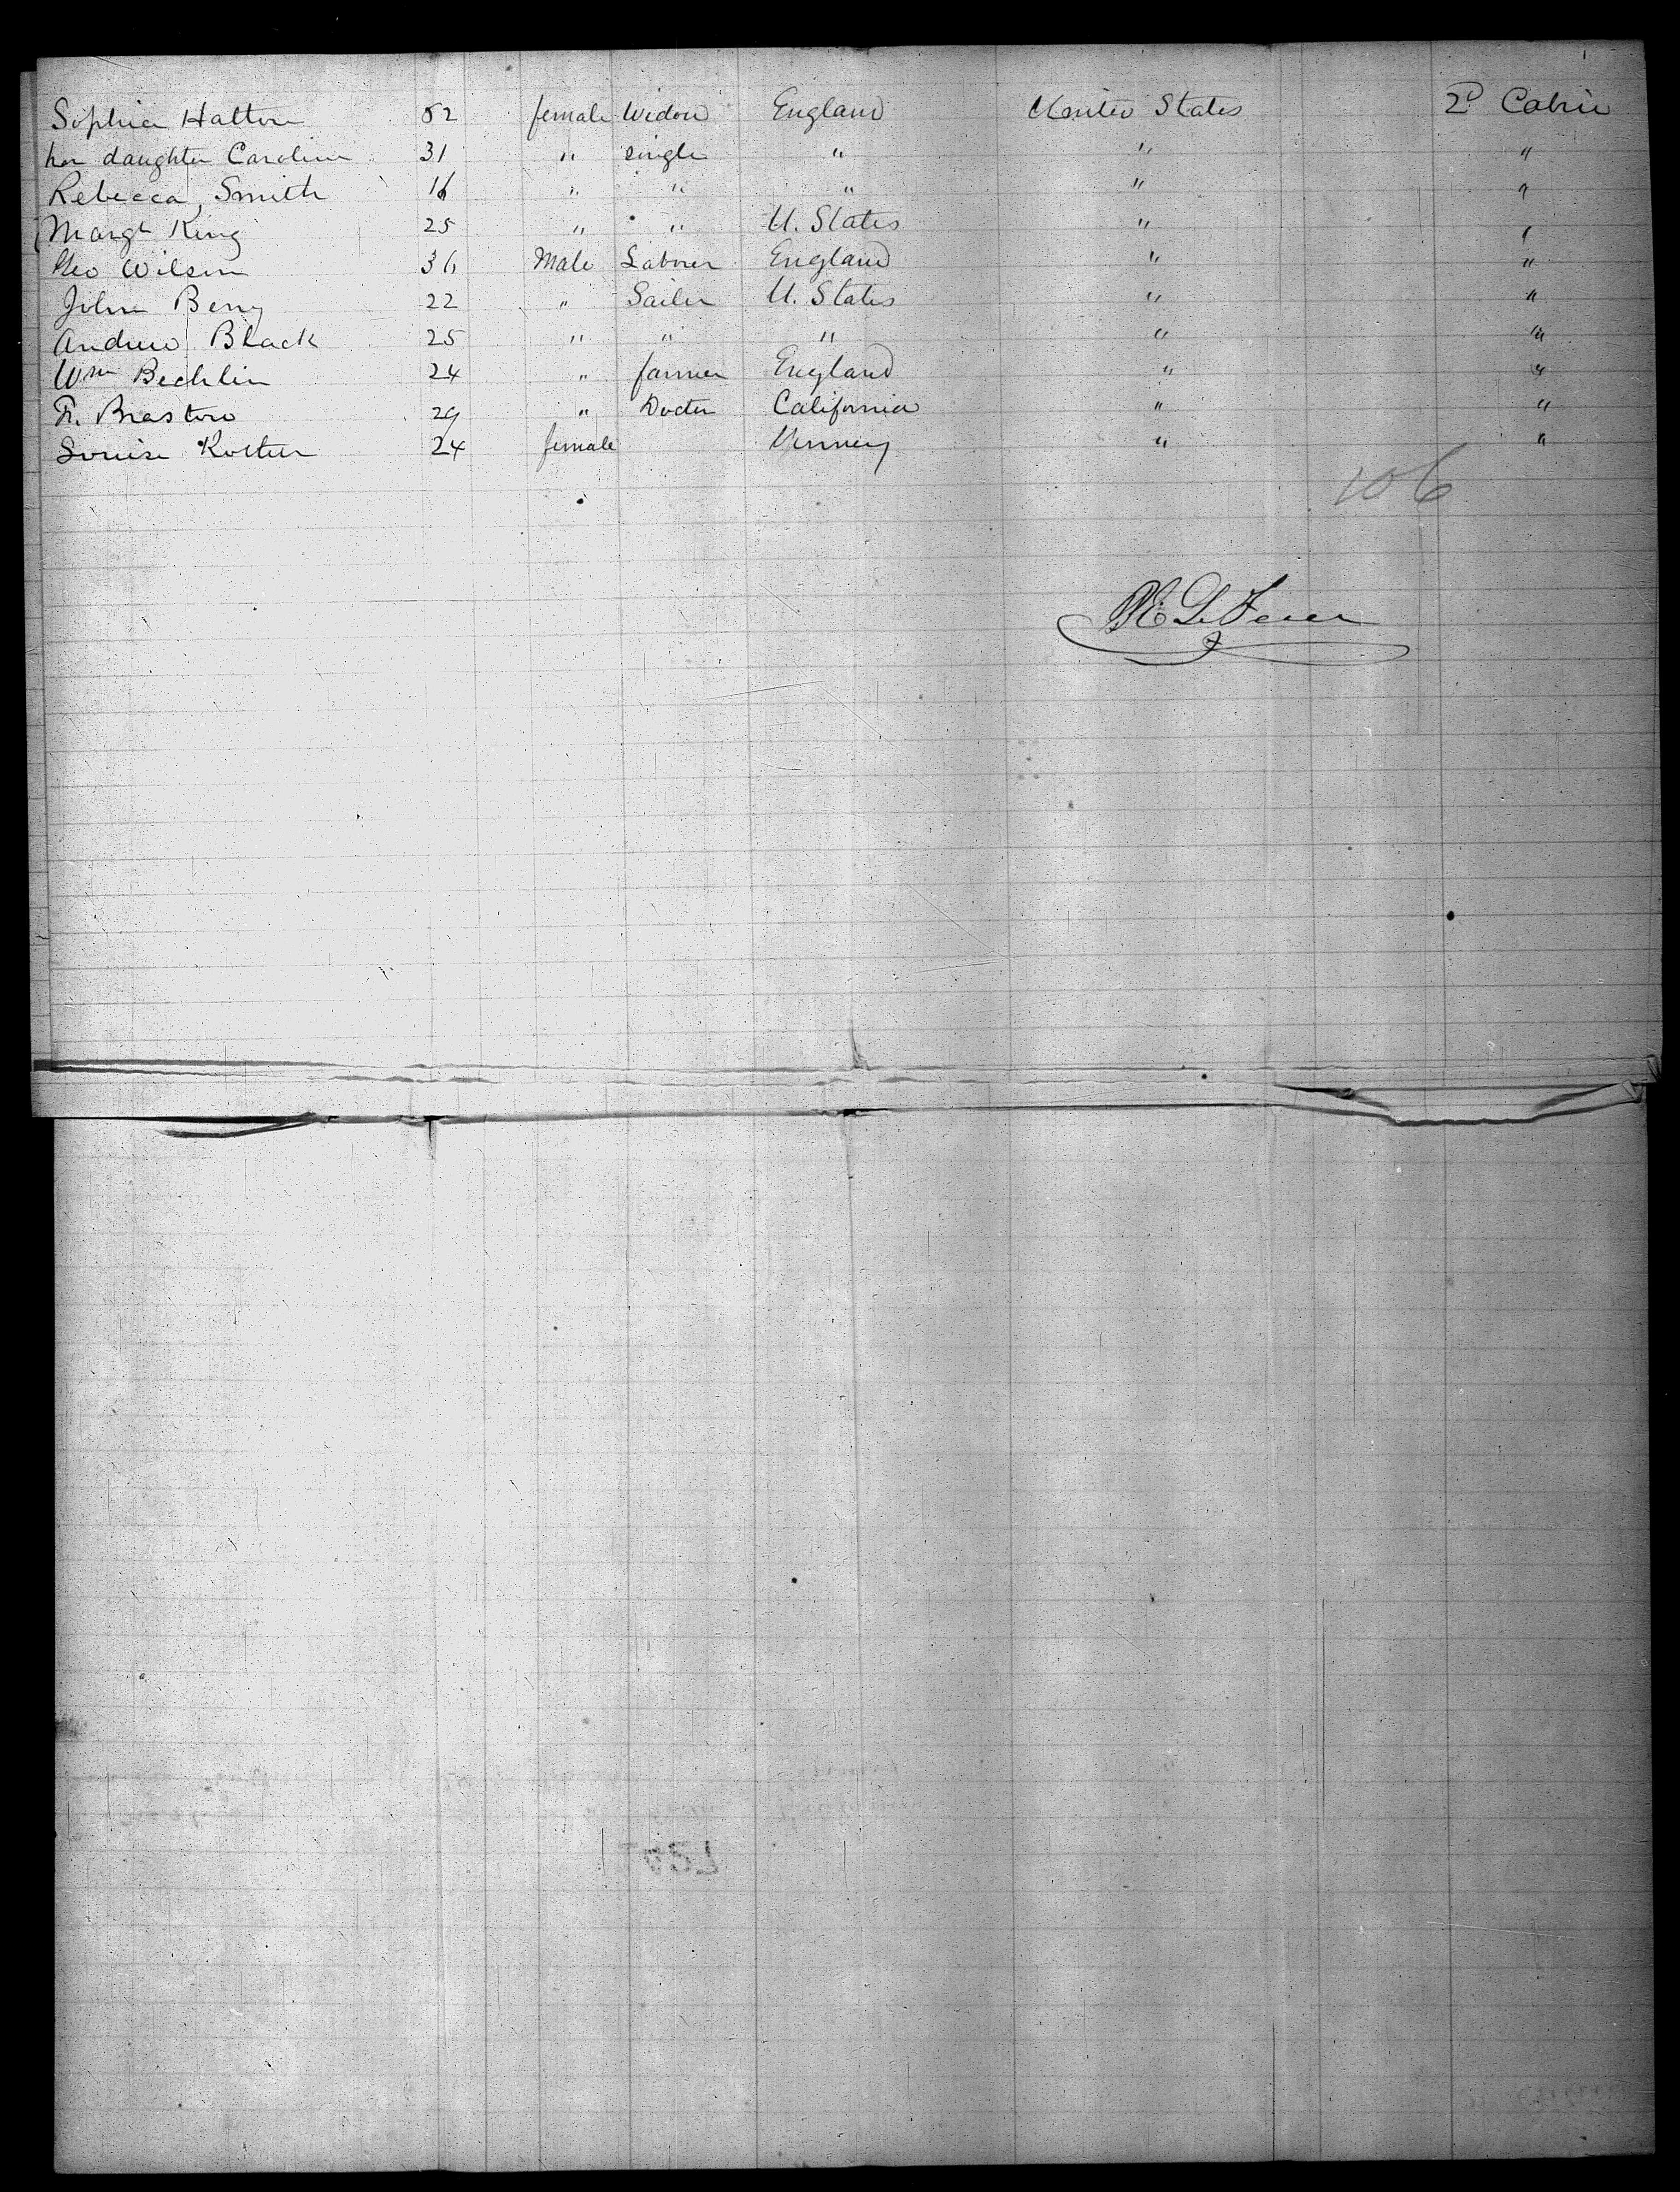 Sophia Hatton 52 female Widow England United States 2d Cabin
her daughter Caroline 31 " single " " "
Rebecca Smith 16 " " " " "
Margt King 25 " " U. States " "
Geo Wilson 36 Male Laborer England " "
John Berry 22 " Sailer U. States " "
Andrew Black 25 " " " " "
Wm Bechlin 24 " farmer England " "
Fr. Brastow 29 " Doctor California " "
Louise 24 female " "
106